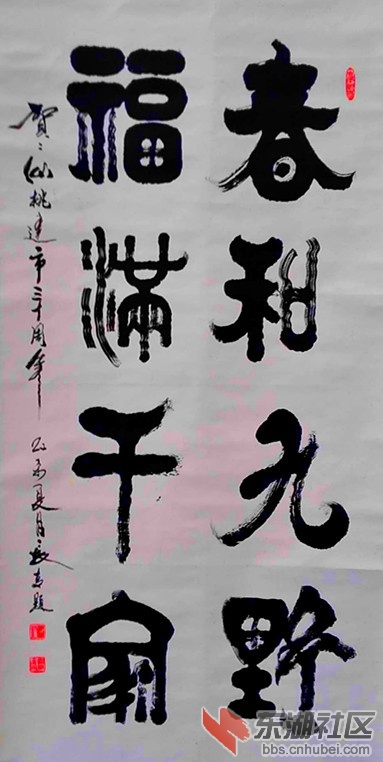 春和九野
福滿千家
賀仙桃建市三十周年 乙未夏月
东湖社区
bbs.cnhubei.com